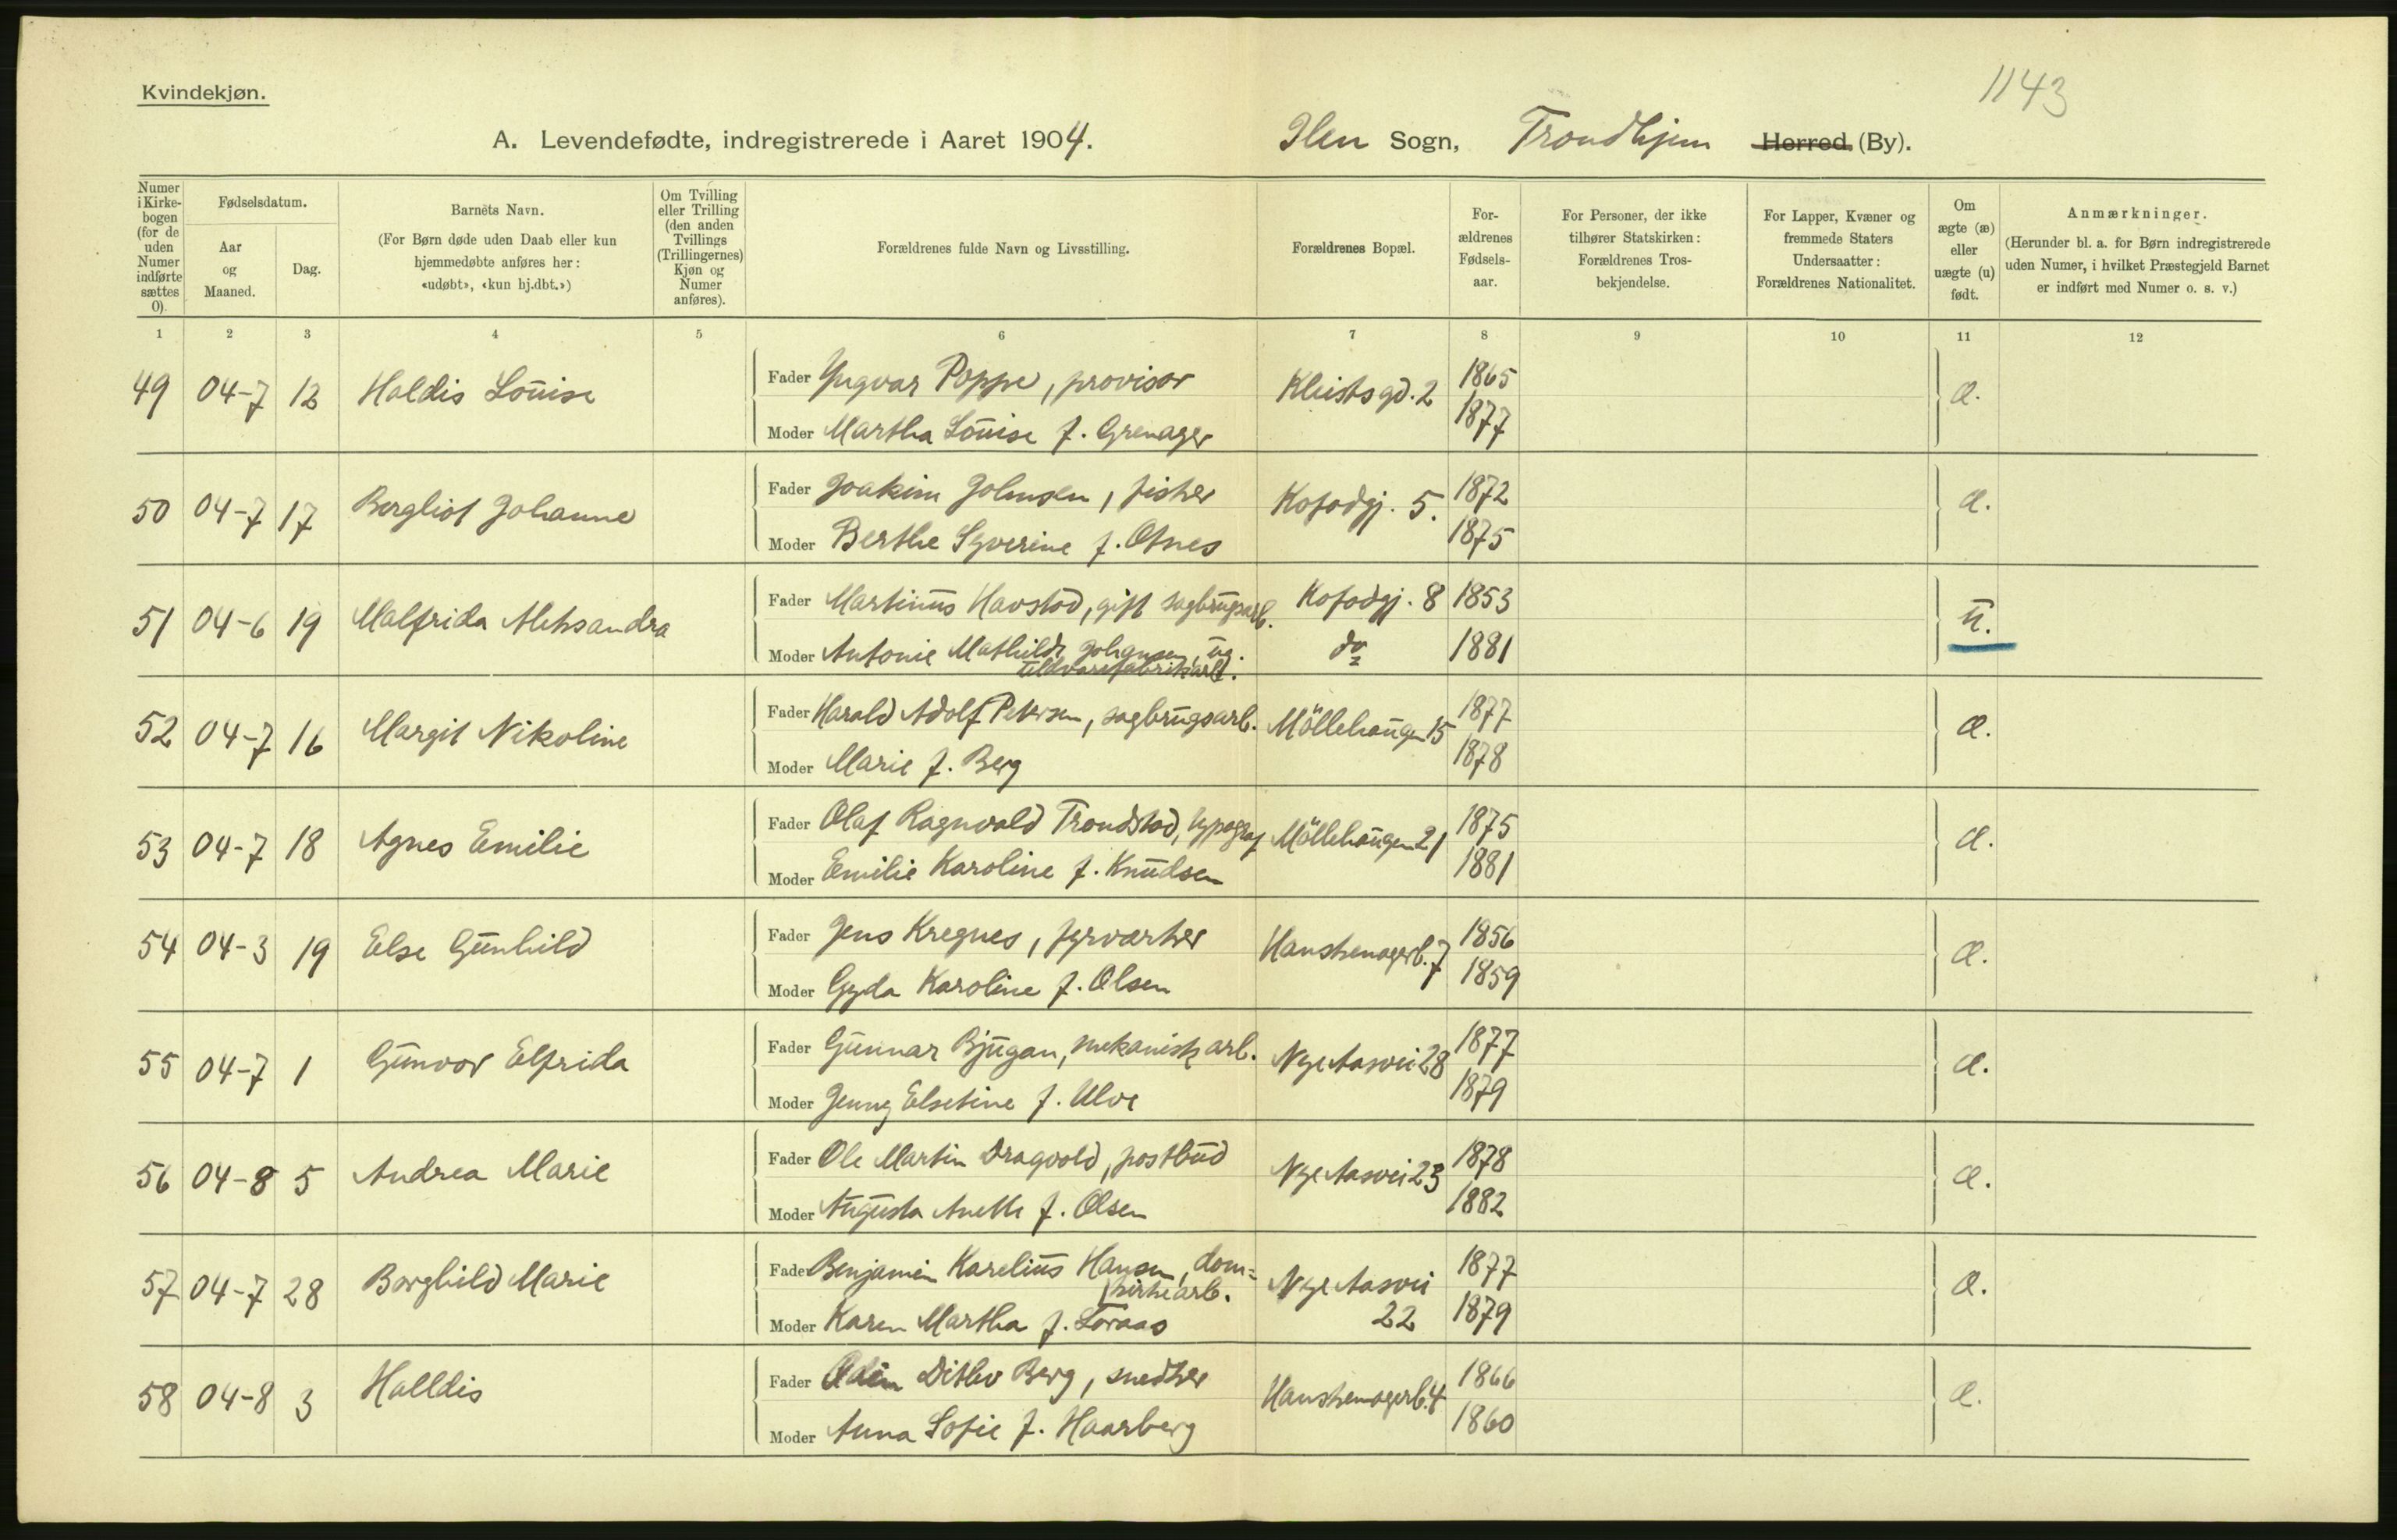 1143
Kvindekjøn.
A. Levendefødte, indregistrerede i Aaret 1904. Ilen Sogn, Trondhjem Herred (By).
Numer i Kirkebogen (for de uden Numer indførte sættes 0).
Fødselsdatum.
Aar og Maaned.
Dag.
Barnets Navn.
(For Børn døde uden Daab eller kun hjemmedøbte anføres her: «udøbt», «kun hj.dbt.»)
Om Tvilling eller Trilling (den anden Tvillings (Trillingernes) Kjøn og Numer anføres).
Forældrenes fulde Navn og Livsstilling.
Forældrenes Bopæl.
For-ældrenes Fødsels-aar.
For Personer, der ikke tilhører Statskirken: Forældrenes Tros-bekjendelse.
For Lapper, Kvæner og fremmede Staters Undersaatter: Forældrenes Nationalitet.
Om ægte (æ) eller uægte (u) født.
Anmærkninger.
(Herunder bl. a. for Børn indregistrerede uden Numer, i hvilket Præstegjeld Barnet er indført med Numer o. s. v.)
1 2 3 4 5 6 7 8 9 10 11 12
49 04-7 12 Haldis Louise Fader Yngvar Poppe, provisor Kleistsgd. 2 1865 æ.
Moder Martha Louise f. Grenager 1877
50 04-7 17 Bergliot Johanne Fader Joakim Johnsen, fisker Kofodgj. 5. 1872 æ.
Moder Berthe Syverine f. Otnes 1875
51 04-6 19 Malfrida Aleksandra Fader Martinus Havstad, gift sagbrugsarb. Kofodgj. 8 1853 u.
Moder Antonie Mathilde Johansen, ug. do 1881
uldvarefabrikarb.
52 04-7 16 Margit Nikoline Fader Harald Adolf Petersen, sagbrugsarb. Möllehaugen 15 1877 æ.
Moder Marie f. Berg 1878
53 04-7 18 Agnes Emilie Fader Olaf Ragnvald Trondstad, typograf Möllehaugen 21 1875 æ.
Moder Emilie Karoline f. Knudsen 1881
54 04-3 19 Else Gunhild Fader Jens Kregnes, fyrvorter Hanskemagerb. 7 1856 æ.
Moder Gyda Karoline f. Olsen 1859
55 04-7 1 Gunvor Elfrida Fader Gunnar Bjugan, mekanisk arb. Nye Aasvei 28 1877 æ.
Moder Jenny Elsetine f. Ulve 1879
56 04-8 5 Andrea Marie Fader Ole Martin Dragvold, postbud Nye Aasvei 23 1878 æ.
Moder Augusta Anette f. Olsen 1882
57 04-7 28 Borghild Marie Fader Benjamin Karelius Hansen, dom= Nye Aasvei 1877 æ.
kirkearb. 22
Moder Karen Martha f. Foraas 1879
58 04-8 3 Halldis Fader Odin Ditlev Berg, snedker Hanskemagerb. 4 1866 æ.
Moder Anna Sofie f. Haarberg 1860